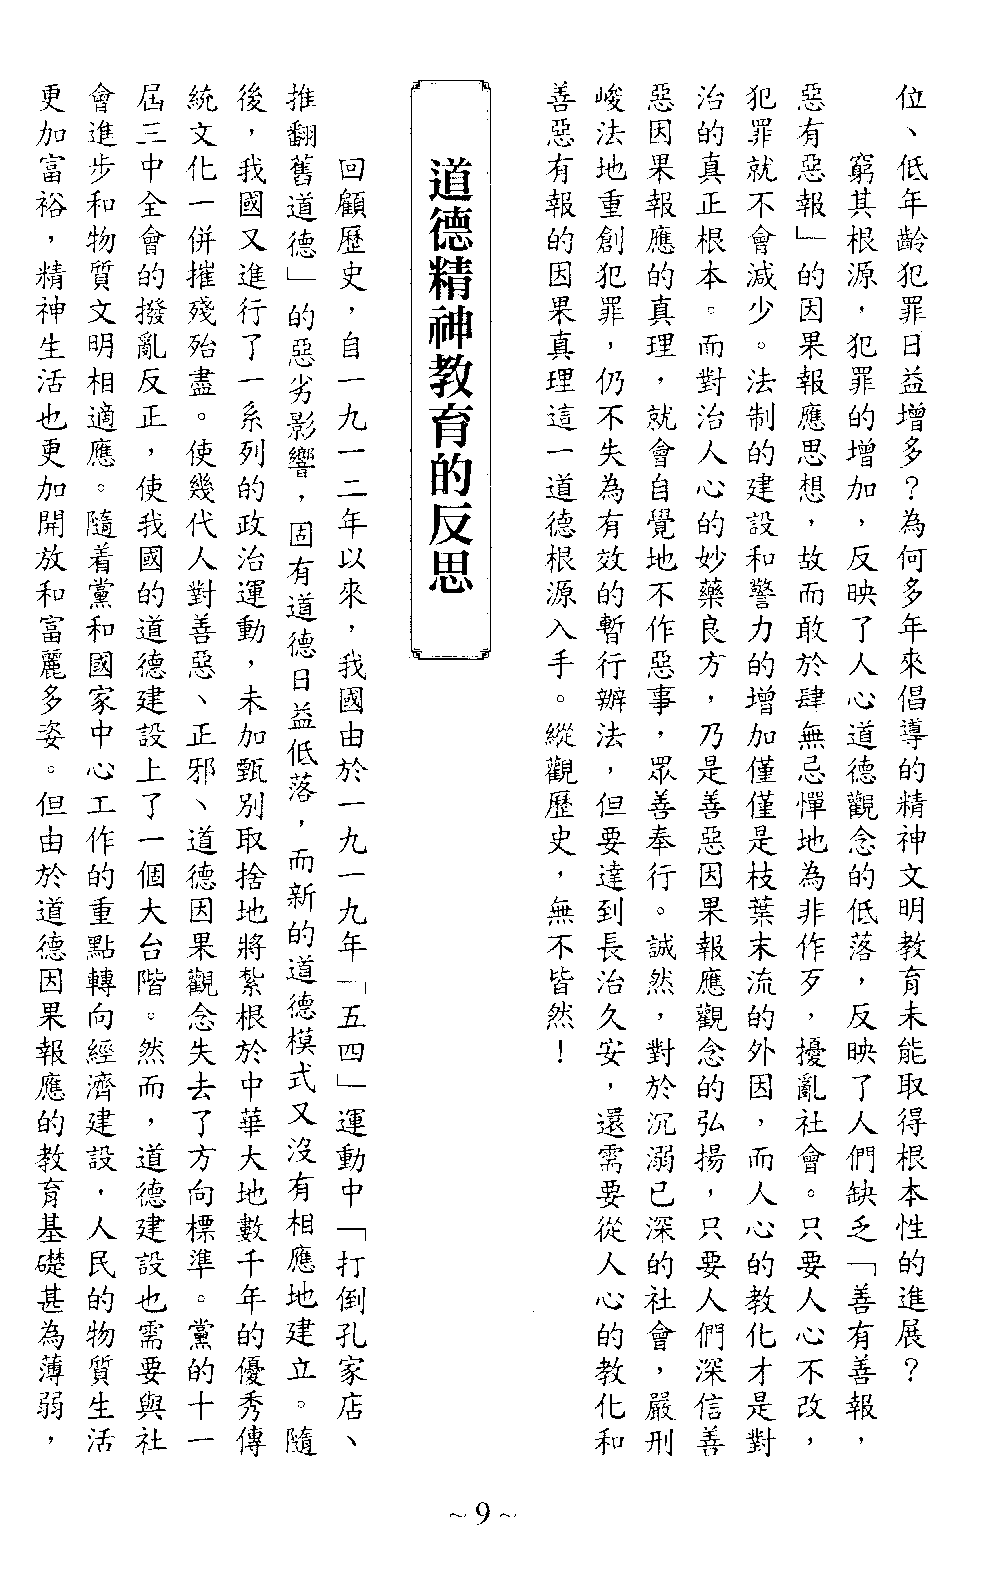 位、低年齡犯罪日益增多？為何多年來倡導的精神文明教育未能取得根本性的進展？
窮其根源，犯罪的增加，反映了人心道德觀念的低落，反映了人們缺乏「善有善報，
惡有惡報」的因果報應思想，故而敢於肆無忌憚地為非作歹，擾亂社會。只要人心不改，
犯罪就不會減少。法制的建設和警力的增加僅僅是枝葉末流的外因，而人心的教化才是對
治的真正根本。而對治人心的妙藥良方，乃是善惡因果報應觀念的弘揚，只要人們深信善
惡因果報應的真理，就會自覺地不作惡事，眾善奉行。誠然，對於沉溺已深的社會，嚴刑
峻法地重創犯罪，仍不失為有效的暫行辦法，但要達到長治久安，還需要從人心的教化和
善惡有報的因果真理這一道德根源入手。縱觀歷史，無不皆然！
道德精神教育的反思
回顧歷史，自一九一二年以來，我國由於一九一九年「五四」運動中「打倒孔家店、
推翻舊道德」的惡劣影響，固有道德日益低落，而新的道德模式又沒有相應地建立。隨
後，我國又進行了一系列的政治運動，未加甄別取捨地將紮根於中華大地數千年的優秀傳
統文化一併摧殘殆盡。使幾代人對善惡、正邪、道德因果觀念失去了方向標準。黨的十一
屆三中全會的撥亂反正，使我國的道德建設上了一個大台階。然而，道德建設也需要與社
會進步和物質文明相適應。隨着黨和國家中心工作的重點轉向經濟建設，人民的物質生活
更加富裕，精神生活也更加開放和富麗多姿。但由於道德因果報應的教育基礎甚為薄弱，
~9~